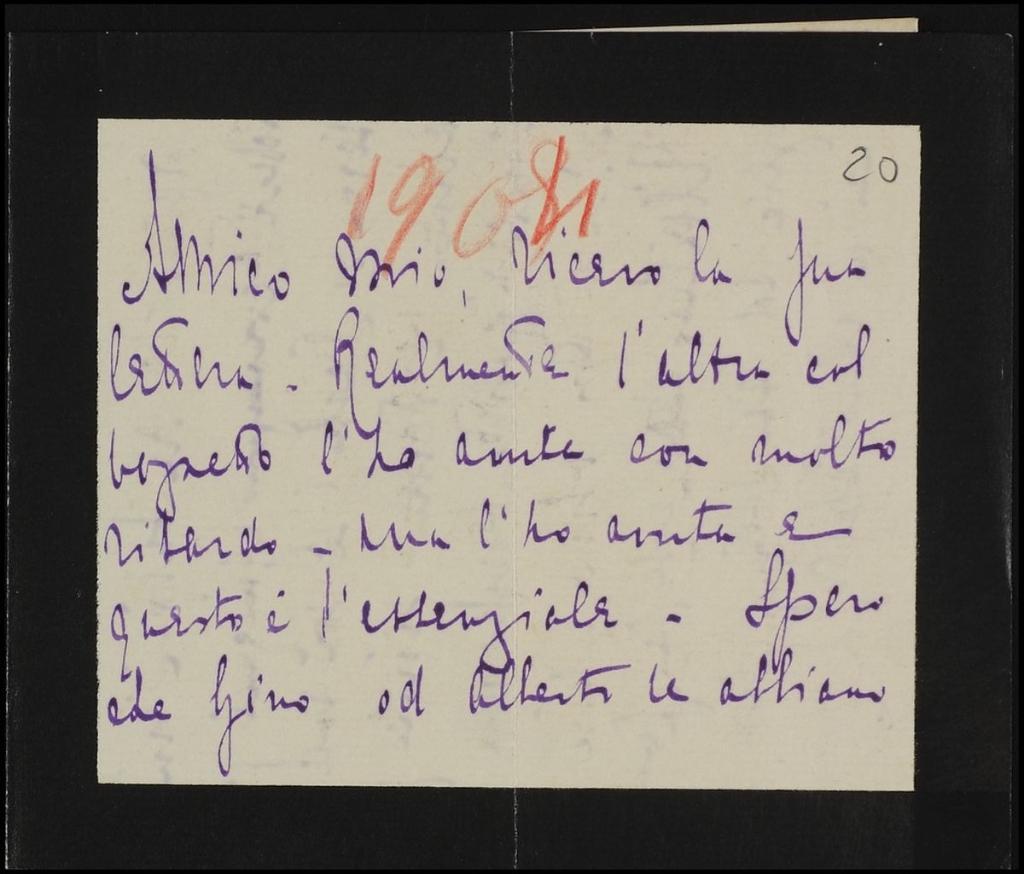 20
190
Amico mio, ricevo la sua
lettera - Realmente l'altra col
bozzetto l'ho avuta con molto
ritardo - ma l'ho avuta e
questo è l'essenziale - Spero
che Gino od Alberto le abbiano